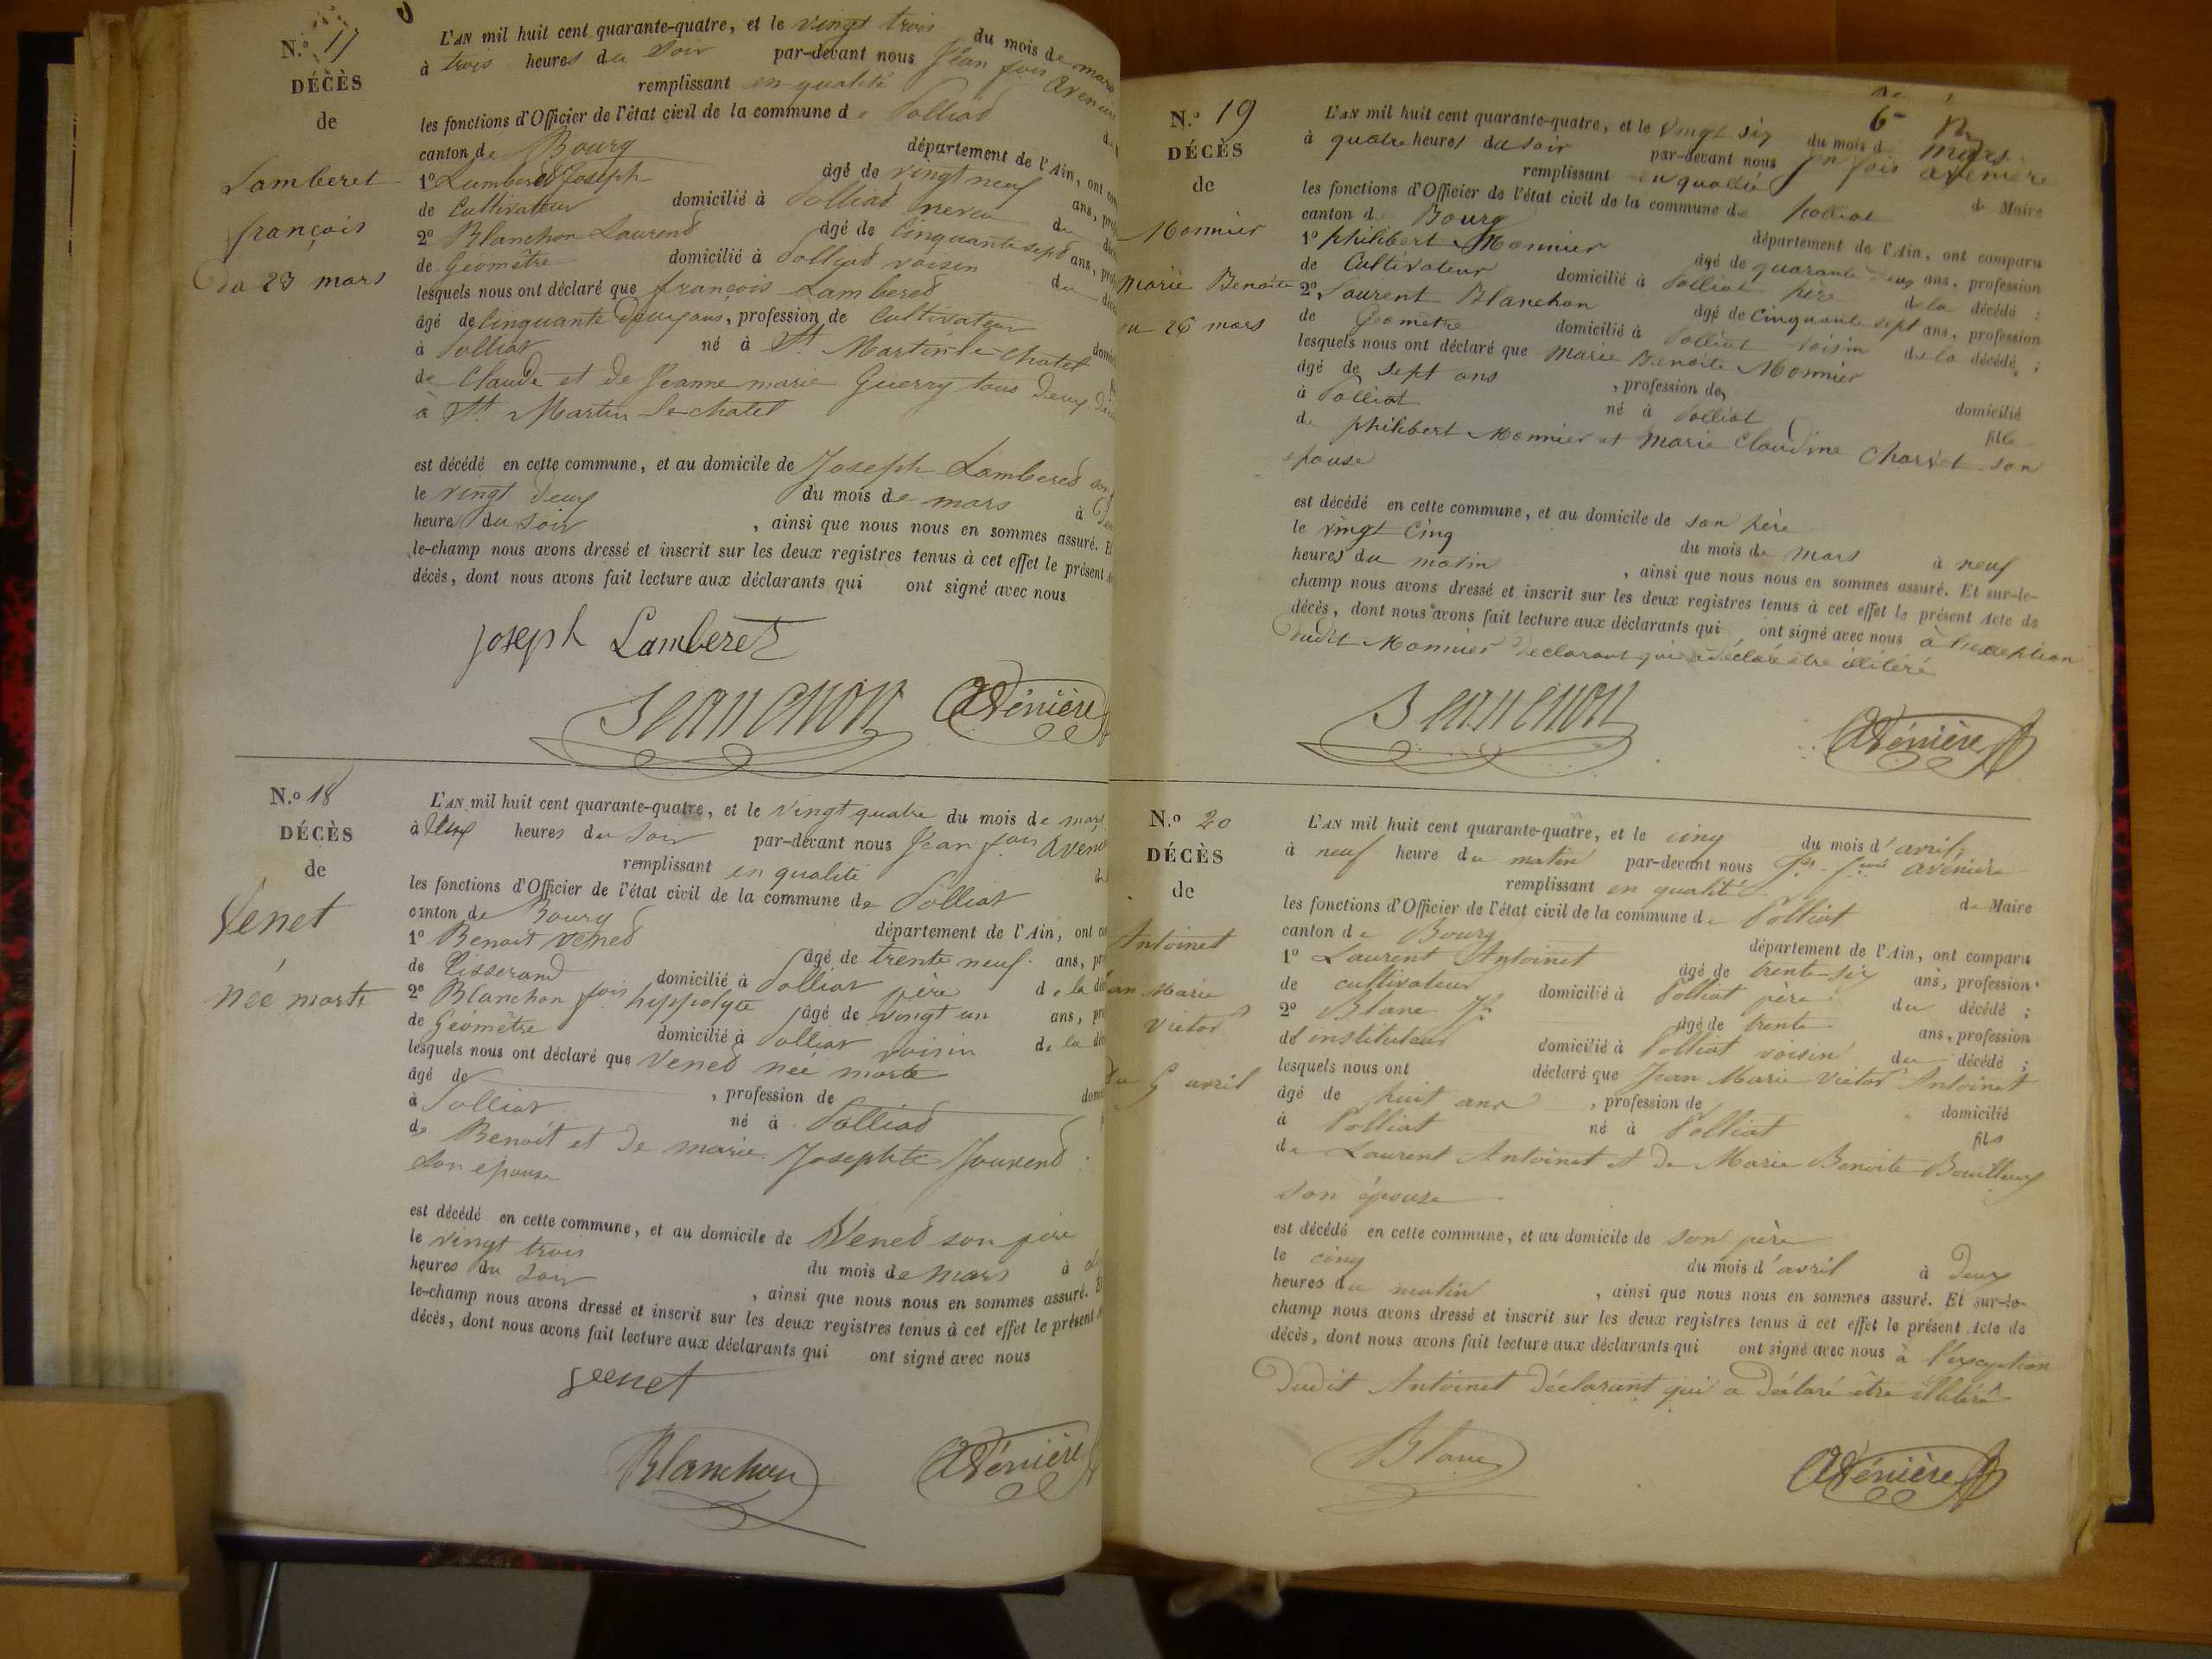 N.o 17
DÉCÈS
de
Lamberet
françois
du 23 mars
L'AN mil huit cent quarante-quatre, et le vingt trois du mois de mars
à trois heures du soir par-devant nous Jean fois
remplissant en qualité
les fonctions d'Officier de l'état civil de la commune de Polliat
canton de Bourg département de l'Ain, ont
1o Lamberet Joseph âgé de vingt neuf ans,
de Cultivateur domicilié à Polliat neveu du
2o Blanchon Laurend âgé de Cinquante sept ans,
de Géomêtre domicilié à Polliat voisin du
lesquels nous ont déclaré que françois Lambered
âgé de Cinquante deux ans, profession de Cultivateur
à Polliat né à St. Martin le chatel
de Claude et de Jeanne marie Guerry tous deux
à St. Martin le chatel
est décédé en cette commune, et au domicile de Joseph Lambered son
le vingt deux du mois de mars à
heures du Soir , ainsi que nous nous en sommes assuré.
le-champ nous avons dressé et inscrit sur les deux registres tenus à cet effet le présent
décès, dont nous avons fait lecture aux déclarants qui ont signé avec nous
joseph Lamberet
Blanchon Avénière
N.o 18
DÉCÈS
de
Venet
née morte
L'AN mil huit cent quarante-quatre, et le vingt quatre du mois de mars
à deux heures du Soir par-devant nous Jean fois
remplissant en qualité
les fonctions d'Officier de l'état civil de la commune de Polliat
canton de Bourg département de l'Ain, ont
1o Benoit Vened âgé de trente neuf ans,
de Tisserand domicilié à Polliat père de la
2o Blanchon fois hyppolyte âgé de vingt un ans,
de Géomêtre domicilié à Polliat voisin de la
lesquels nous ont déclaré que Vened née morte
âgé de , profession de
à Polliat né à Polliad
de Benoit et de marie Josephte Jouvend
son epouse
est décédé en cette commune, et au domicile de Vened son père
le vingt trois du mois de mars à
heures du Soir , ainsi que nous nous en sommes assuré.
le-champ nous avons dressé et inscrit sur les deux registres tenus à cet effet le présent
décès, dont nous avons fait lecture aux déclarants qui ont signé avec nous
veenet
Blanchon Avénière
N.o 19
DÉCÈS
de
Monnier
Marie Benoite
du 26 mars
L'AN mil huit cent quarante-quatre, et le vingt six du mois de mars
à quatre heures du soir par-devant nous Jn fois avenière
remplissant en qualité de Maire
les fonctions d'Officier de l'état civil de la commune de Polliat
canton de Bourg département de l'Ain, ont comparu
1o philibert Monnier âgé de quarante deux ans, profession
de Cultivateur domicilié à Polliat père de la décédé ;
2o Laurent Blanchon âgé de cinquante sept ans, profession
de Géometre domicilié à Polliat voisin de la décédé ;
lesquels nous ont déclaré que Marie Benoite Monnier
âgé de sept ans , profession de domicilié
à Polliat né à Polliat fille
de philibert Monnier et Marie Claudine Charvet son
epouse
est décédé en cette commune, et au domicile de son père
le vingt cinq du mois de Mars à neuf
heures du matin , ainsi que nous nous en sommes assuré. Et sur-le-
champ nous avons dressé et inscrit sur les deux registres tenus à cet effet le présent Acte de
décès, dont nous avons fait lecture aux déclarants qui ont signé avec nous à l'exception
dudit Monnier declarant qui a déclaré être illitéré
Blanchon Avénière
N.o 20
DÉCÈS
de
Antoinet
Jean Marie
Victor
Du 5 avril
L'AN mil huit cent quarante-quatre, et le cinq du mois d'avril
à neuf heure du matin par-devant nous Jn fois avénière
remplissant en qualité de Maire
les fonctions d'Officier de l'état civil de la commune de Polliat
canton de Bourg département de l'Ain, ont comparu
1o Laurent Antoinet âgé de trente-six ans, profession
de cultivateur domicilié à Polliat père du décédé ;
2o Blanc Jh âgé de trente ans, profession
de instituteur domicilié à Polliat voisin du décédé ;
lesquels nous ont déclaré que Jean Marie Victor Antoinet
âgé de huit ans , profession de domicilié
à Polliat né à Polliat fils
de Laurent Antoinet et de Marie Benoite Bouilloux
son épouse
est décédé en cette commune, et au domicile de son père
le cinq du mois d'avril à deux
heures du matin , ainsi que nous nous en sommes assuré. Et sur-le-
champ nous avons dressé et inscrit sur les deux registres tenus à cet effet le présent Acte de
décès, dont nous avons fait lecture aux déclarants qui ont signé avec nous à l'exception
Dudit Antoinet déclarant qui a déclaré être illitéré
Blanc Avénière